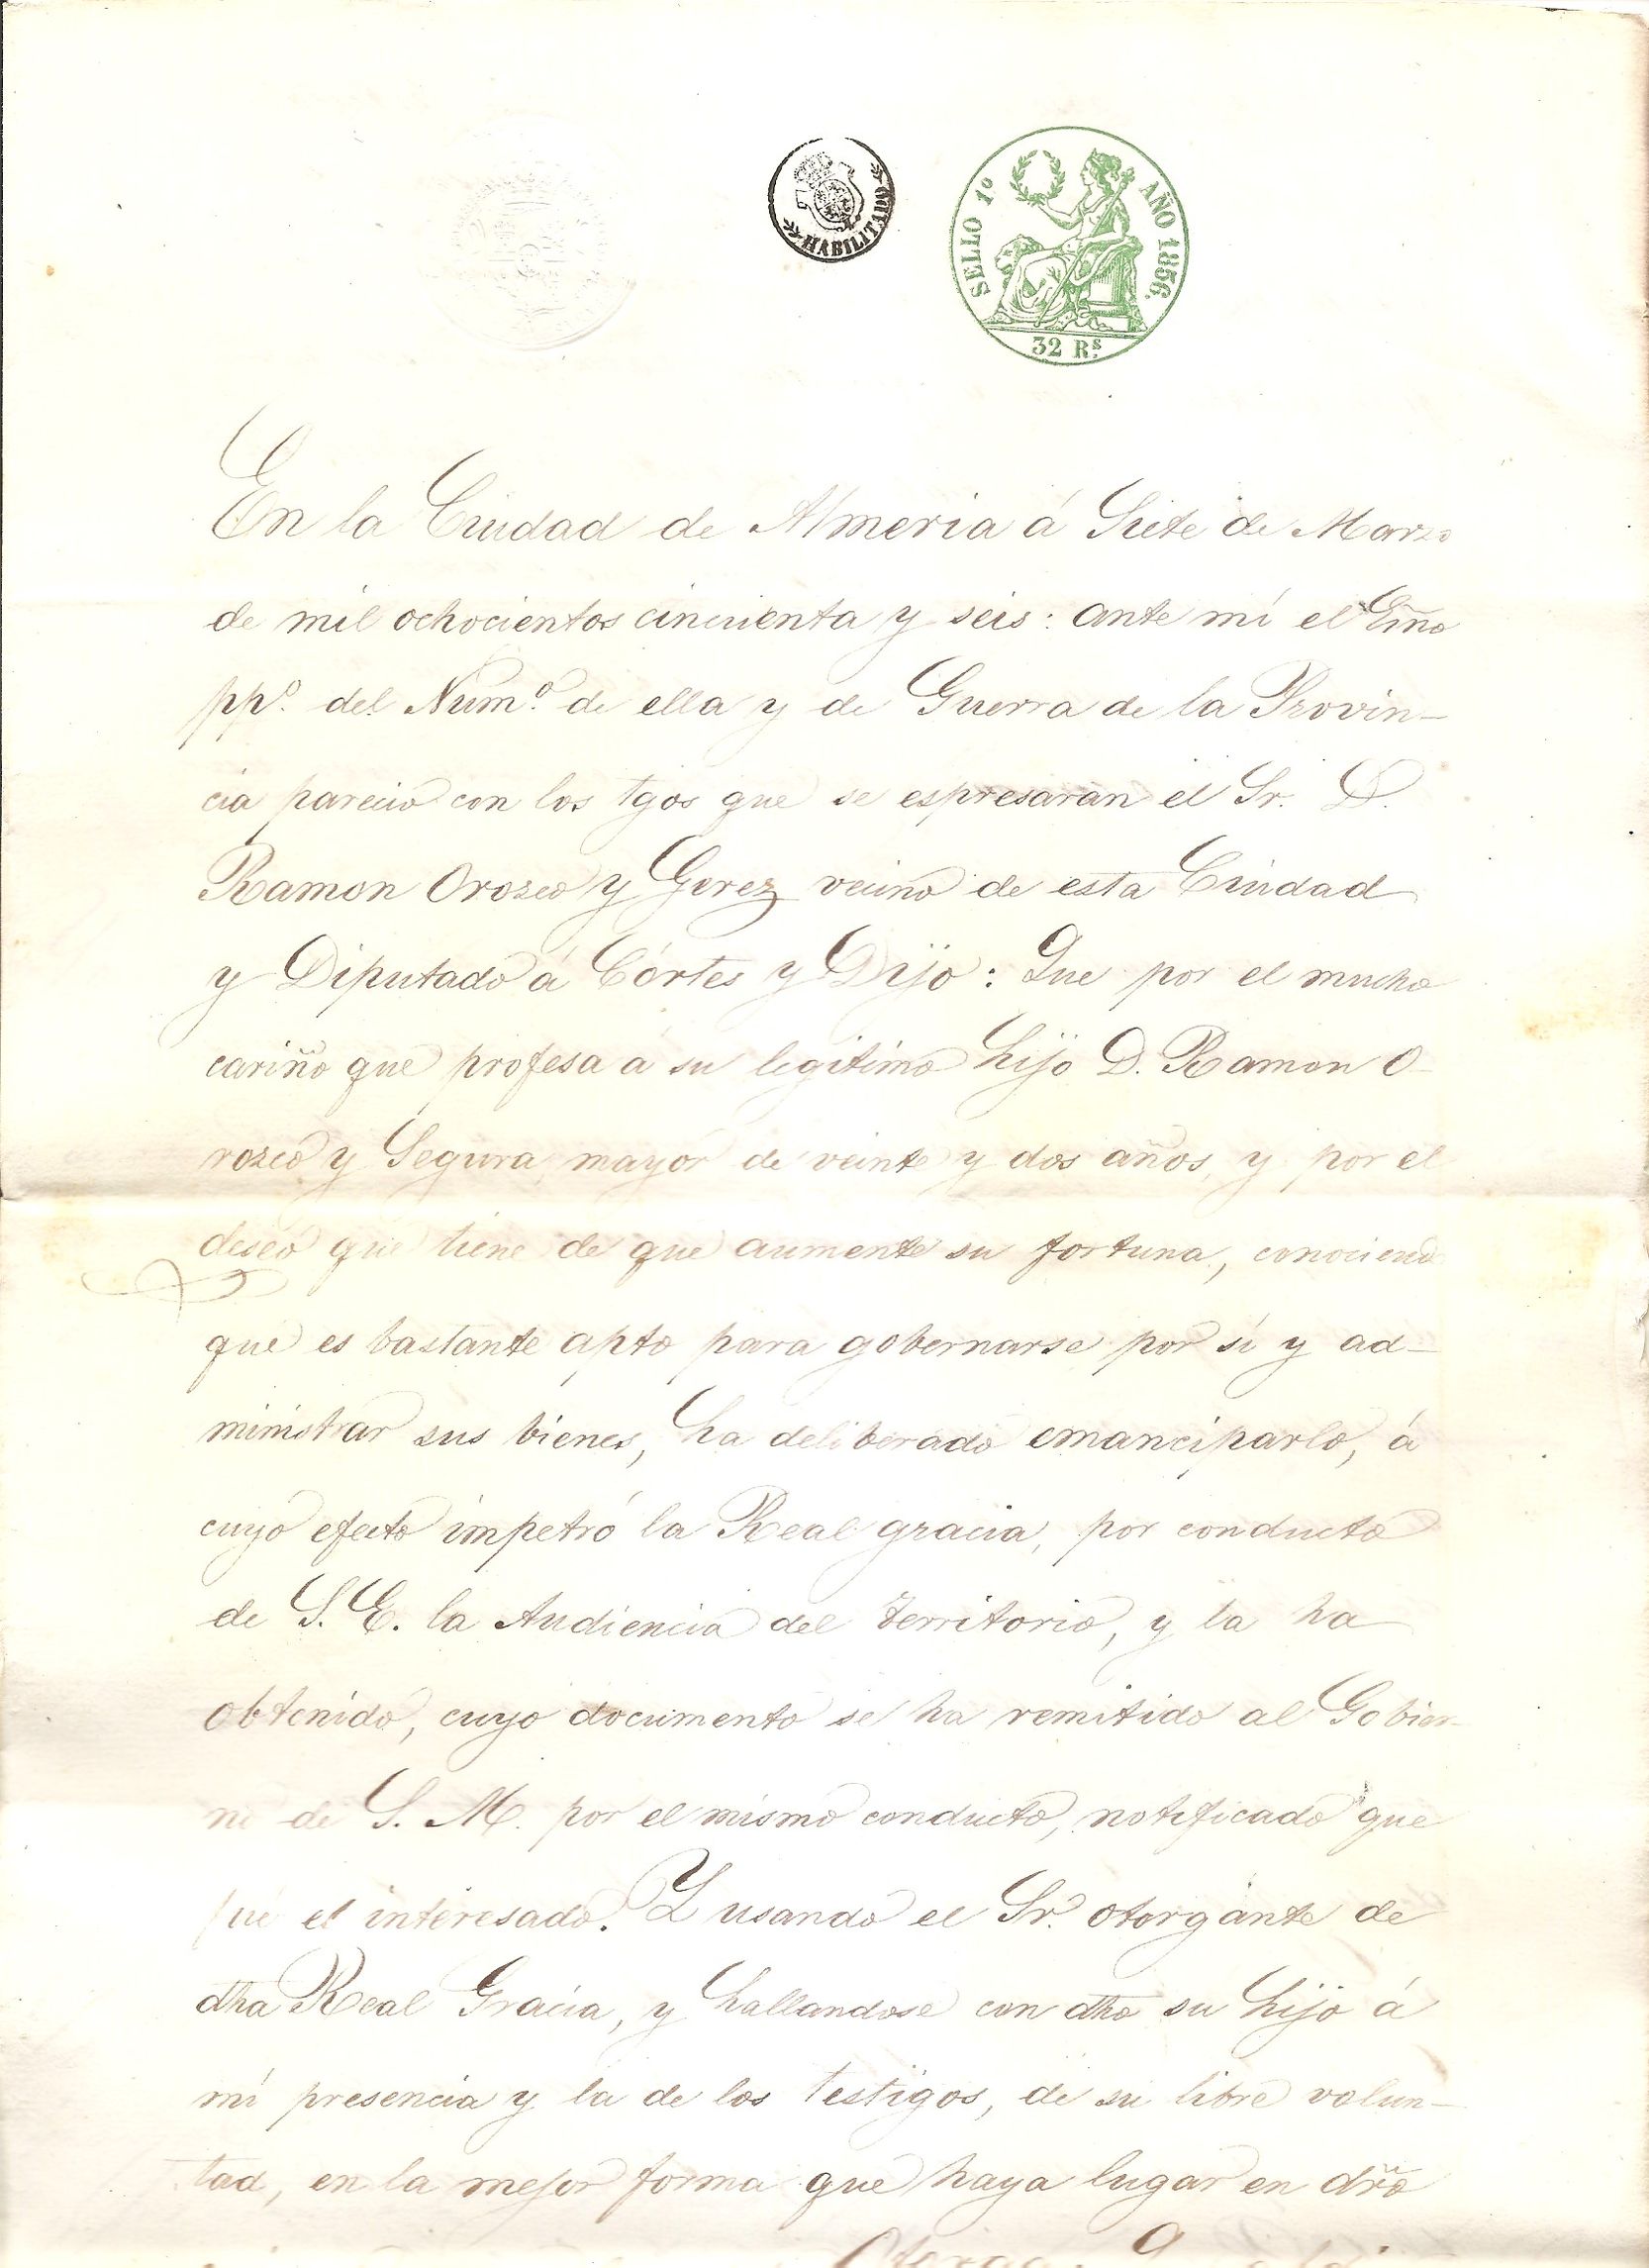 HABILITADO
SELLO 1º AÑO 1856.
32 Rs.
En la Ciudad de Almeria á Siete de Marzo
de mil ochocientos cincuenta y seis: ante mí el Esño
ppº. del Numº. de ella y de Guerra de la Provin-
cia pareció con los tgos que se espresarán el Sr. D.
Ramon Orozco y Gerez vecino de esta Ciudad
y Diputado á Córtes y Dijo: Que por el mucho
cariño que profesa á su legitimo hijo D. Ramon O-
rozco y Segura mayor de veinte y dos años, y por el
deseo que tiene de que aumente su fortuna, conociendo
que es bastante apto para gobernarse por sí y ad-
ministrar sus bienes, ha deliberado emanciparlo, á
cuyo efecto impetró la Real gracia, por conducto
de S. E. la Audiencia del territorio, y la ha
obtenido, cuyo documento se ha remitido al Gobier-
no de S. M. por el mismo conducto, notificado que
fué el interesado. Y usando el Sr. otorgante de
dha Real Gracia, y hallandose con dho su hijo á
mí presencia y la de los testigos, de su libre volun-
tad, en la mejor forma que haya lugar en dro